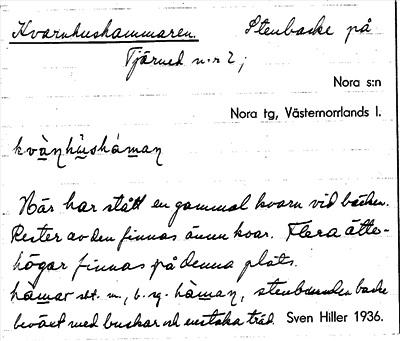 Kvarnhushammaren. Stenbacke på
Tjärned n:r 2;
Nora s:n
Nora tg, Västernorrlands l.
kvạ̀nhụ̄shámạn
Här har stått en gammal kvarn vid bäcken.
Rester av den finnas ännu kvar. Flera ätte-
högar finnas på denna plats.
hạmar sbt. m., b. sg. hạ̀man, stenbunden backe
beväxt med buskar och enstaka träd. Sven Hiller 1936.